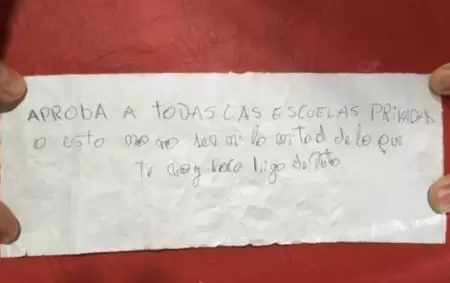 APROBA A TODAS LAS ESCUELAS PRIVADAS
O ESTO no va ser ni la mitad de lo que
te voy hacer hijo de